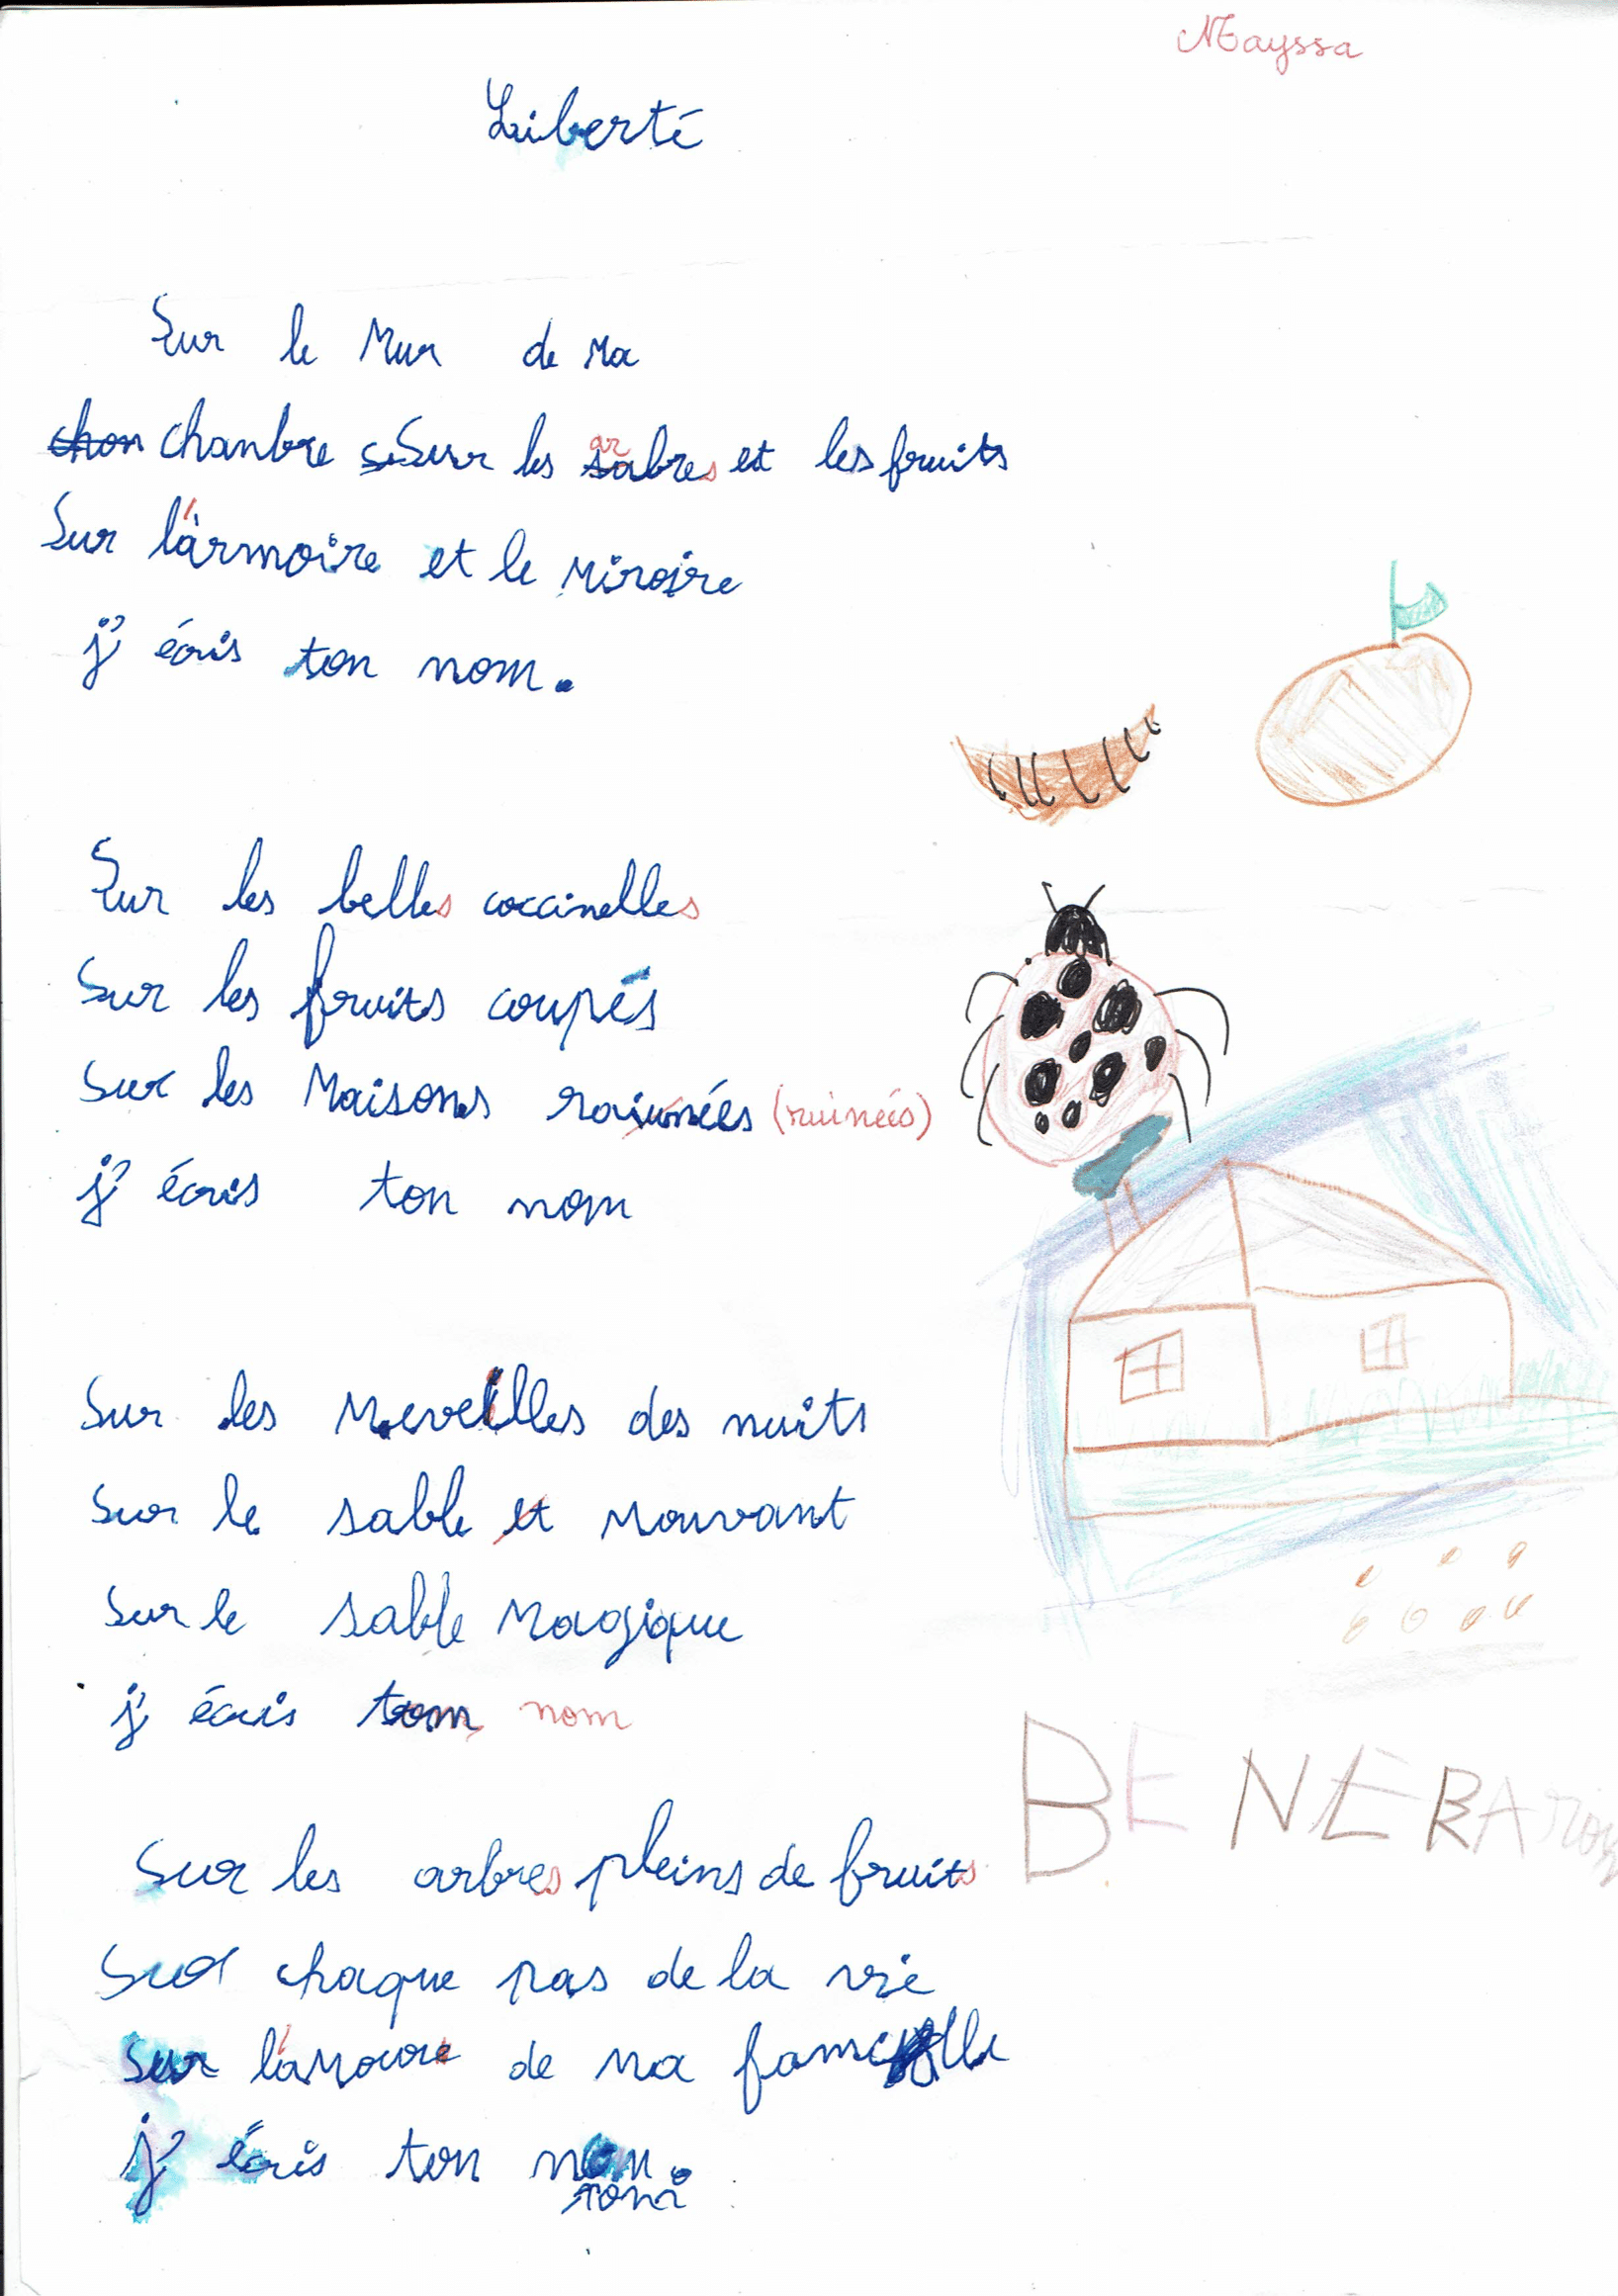 Mayssa
Liberté
Sur le Mur de Ma
chanbre Sur les arbres et les fruits
Sur l'armoire et le Miroire
j'écris ton nom.
Sur les belles coccinelles
Sur les fruits coupés
Sur les Maisons (ruinées)
j'écris ton nom
Sur les Merveilles des nuits
Sur le sable et Mouvant
Sur le sable Magique
j'écris ton nom
BENEBA
Sur les arbres pleins de fruits
Sur chaque pas de la vie
Sur l'amour de ma famille
j'écris ton nom.